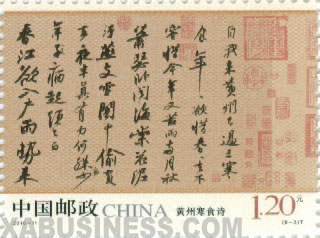 自我来黄州已過三寒
食年〻欲惜春〻去不
容惜今年又苦雨兩月秋
蕭瑟卧聞海棠花泥
汙燕支雪闇中偷負
去夜半真有力何殊
年子病起須已白
春江欲入户雨勢来
中国邮政 CHINA 黄州寒食诗 1.20元
2010-11